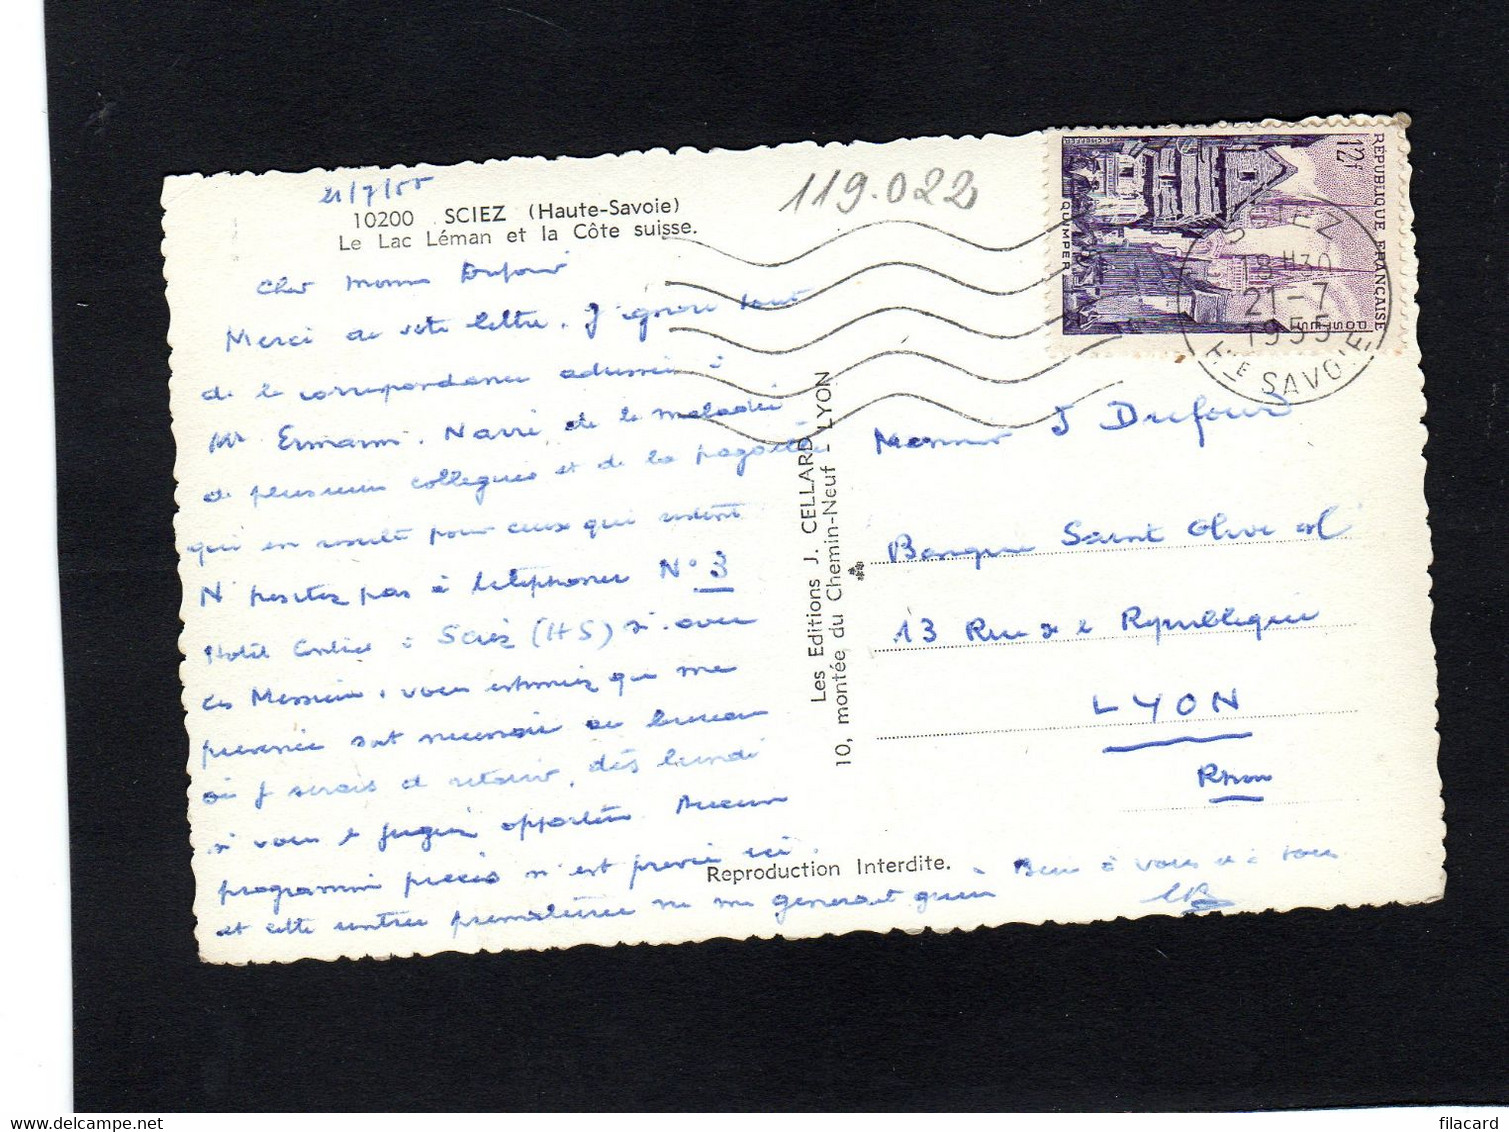 21/7/55
119.022
10200 SCIEZ (Haute-Savoie)
Le Lac Léman et la Côte suisse.
Cher Monsieur Dufour
Merci de votre lettre. J'ignore tout
de la correspondance adressée à
Mr Ermann. Navré de la maladie
de plusieurs collègues et de la pagaille
qui en résulte pour ceux qui restent
N'hésitez pas à téléphoner N° 3
Hôtel à Sciez (HS) si avec
ces Messieurs, vous estimiez que ma
présence soit nécessaire au bureau
où je serais de retour, dès lundi
si vous le jugiez opportun. Aucun
programme précis n'est prévu ici.
et cette rentrée prématurée ne me generait guère - Bien à vous et à tous
REPUBLIQUE FRANÇAISE
12f
POSTES
QUIMPER
SCIEZ
18H30
21-7
1955
HTE SAVOIE
Les Editions J. CELLARD
10, montée du Chemin-Neuf - LYON
Monsieur J Dufour
Banque Saint Olive
13 Rue de la République
LYON
Rhône
Reproduction Interdite.
filacard